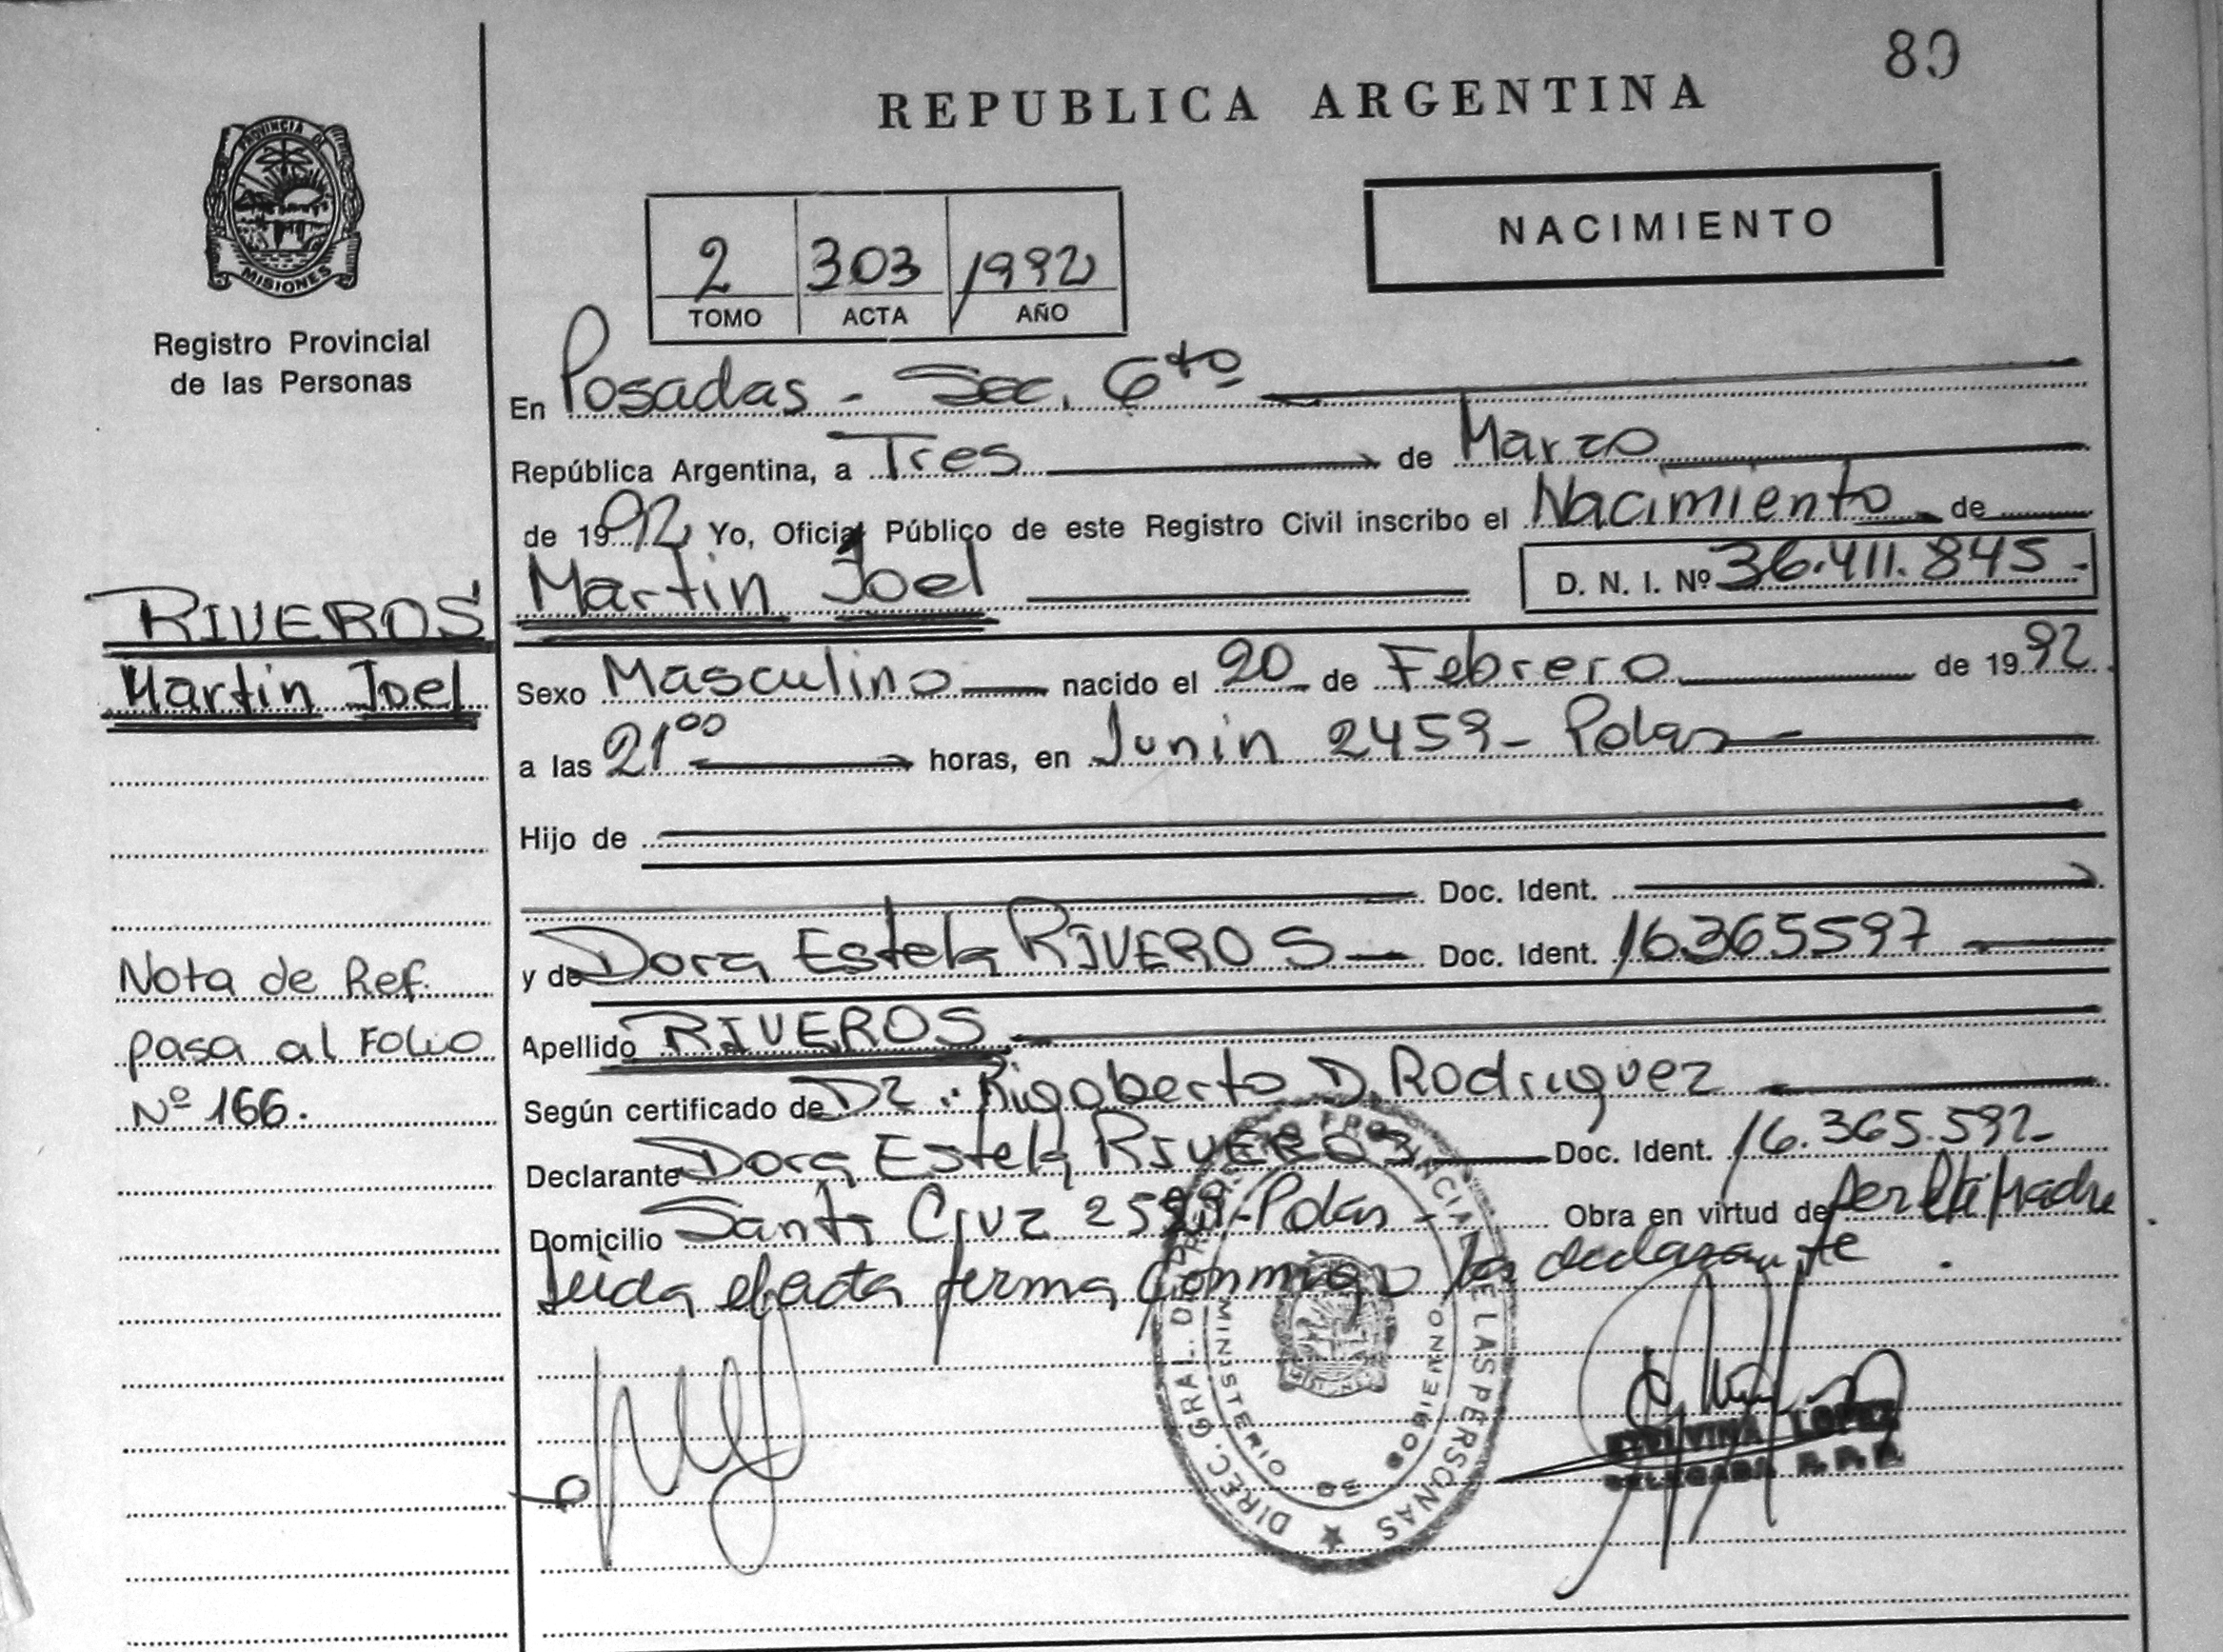 80
REPUBLICA ARGENTINA
PROVINCIA DE
MISIONES
Registro Provincial
de las Personas
NACIMIENTO
2 303 1992
TOMO ACTA AÑO
En Posadas - Sec. 6to
República Argentina, a Tres de Marzo
de 1992 Yo, Oficial Público de este Registro Civil inscribo el Nacimiento de
Martin Joel D. N. I. Nº 36.411.845-
RIVEROS
Martin Joel
Sexo Masculino nacido el 20 de Febrero de 1992
a las 21 00 horas, en Junin 2459- Pdas
Hijo de
Doc. Ident.
y de Dora Estela RIVEROS Doc. Ident. 16365597
Nota de Ref.
pasa al Folio
Nº 166.
Apellido RIVEROS
Según certificado de Dr. Rigoberto D. Rodriguez
Declarante Dora Estela RIVEROS Doc. Ident. 16.365.597-
Domicilio Santa Cruz Pdas - Obra en virtud de ser Madre
Leida el acta firma conmigo la declarante.
DIREC. GRAL. DE LAS PERSONAS
MINISTERIO DE GOBIERNO
LOPEZ
DELEGADA R. P. P.